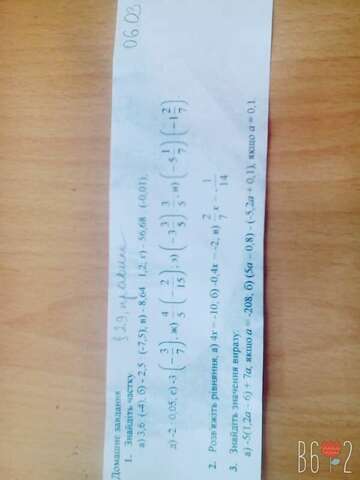 06.03
§ 29, правила
Домашнє завдання
1. Знайдіть частку
а) 3,6 (-4), б) - 2,5 (-7,5), в) - 8,64 1,2, г) - 56,68 (-0,01),
д) -2 0,05, е) -3 (-3/7), ж) 4/5 (-2/15), з) (-3 3/5) 3/5, и) (-5 1/7) (-1 2/7)
2. Розв'яжіть рівняння, а) 4x = -10; б) -0,4x = -2, в) 2/7 x = -1/14
3. Знайдіть значення виразу
а) -5(1,2a - 6) + 7a, якщо a = -208, б) (5a - 0,8) - (-5,2a + 0,1), якщо a = 0,1
В6 2